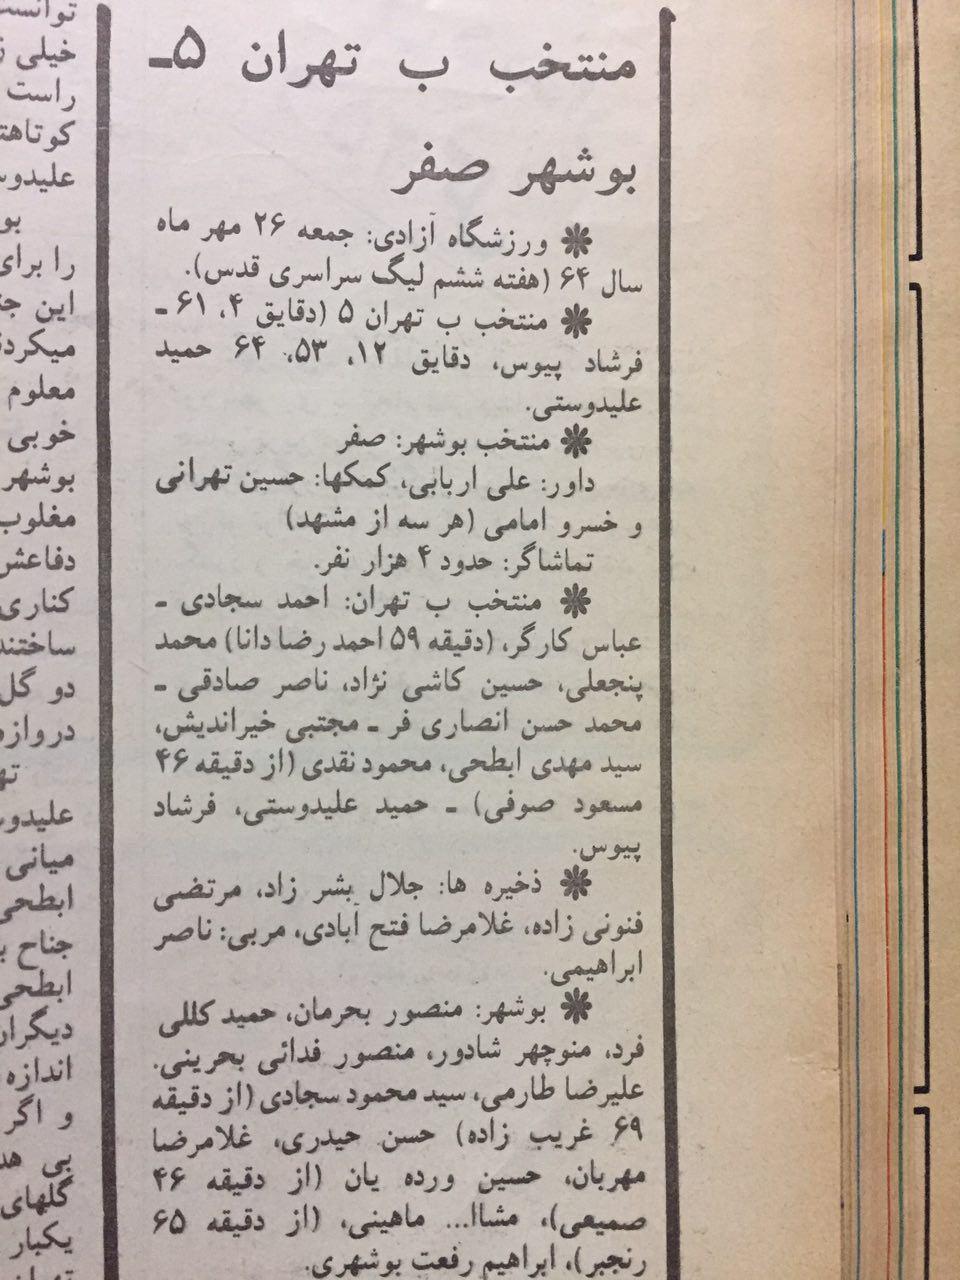 منتخب ب تهران ۵ـ
بوشهر صفر
❋ ورزشگاه آزادی: جمعه ۲۶ مهر ماه
سال ۶۴ (هفته ششم لیگ سراسری قدس).
❋ منتخب ب تهران ۵ (دقایق ۴، ۶۱ ـ
فرشاد پیوس، دقایق ۱۲، ۵۳، ۶۴ حمید
علیدوستی.
❋ منتخب بوشهر: صفر
داور: علی اربابی، کمکها: حسین تهرانی
و خسرو امامی (هر سه از مشهد)
تماشاگر: حدود ۴ هزار نفر.
❋ منتخب ب تهران: احمد سجادی ـ
عباس کارگر، (دقیقه ۵۹ احمد رضا دانا) محمد
پنجعلی، حسین کاشی نژاد، ناصر صادقی ـ
محمد حسن انصاری فر ـ مجتبی خیراندیش،
سید مهدی ابطحی، محمود نقدی (از دقیقه ۴۶
مسعود صوفی) ـ حمید علیدوستی، فرشاد
پیوس.
❋ ذخیره ها: جلال بشر زاد، مرتضی
فنونی زاده، غلامرضا فتح آبادی، مربی: ناصر
ابراهیمی.
❋ بوشهر: منصور بحرمان، حمید کللی
فرد، منوچهر شادور، منصور فدائی بحرینی.
علیرضا طارمی، سید محمود سجادی (از دقیقه
۶۹ غریب زاده) حسن حیدری، غلامرضا
مهربان، حسین ورده یان (از دقیقه ۴۶
صمیعی)، مشاا... ماهینی، (از دقیقه ۶۵
رنجبر)، ابراهیم رفعت بوشهری.
خیلی
راست
علیدوس
بو
را برای
این
معلوم
خوبی
بوشهر
مغلوب
دفاعش
کناری
ساختند
دو گل
علیدوس
میانی
ابطحی
جناح
ابطحی
دیگران
اندازه
و اگر
بی
گلهای
یکبار